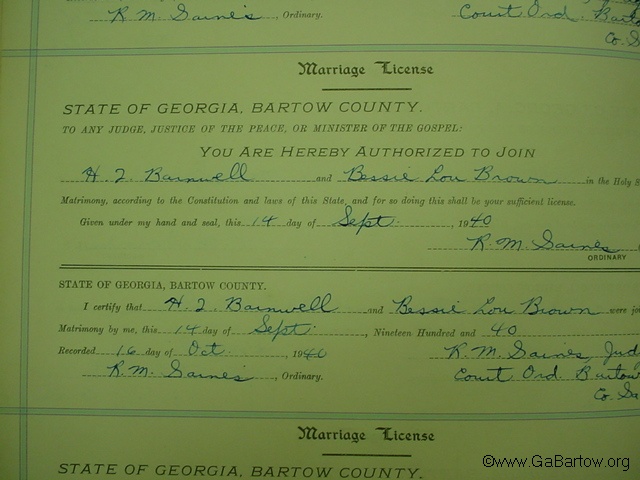 R. M. Gaines, Ordinary. Court Ord. Bartow
Co.
Marriage License
STATE OF GEORGIA, BARTOW COUNTY.
TO ANY JUDGE, JUSTICE OF THE PEACE, OR MINISTER OF THE GOSPEL:
YOU ARE HEREBY AUTHORIZED TO JOIN
H. T. Barnwell and Bessie Lou Brown in the Holy S
Matrimony, according to the Constitution and laws of this State, and for so doing this shall be your sufficient license.
Given under my hand and seal, this 14 day of Sept. 1940
R. M. Gaines
ORDINARY
STATE OF GEORGIA, BARTOW COUNTY.
I certify that H. T. Barnwell and Bessie Lou Brown were joi
Matrimony by me, this 14 day of Sept., Nineteen Hundred and 40
Recorded 16 day of Oct., 1940 R. M. Gaines, Jud
R. M. Gaines, Ordinary. Court Ord. Bartow
Co. Ga
Marriage License
STATE OF GEORGIA, BARTOW COUNTY.
©www.GaBartow.org